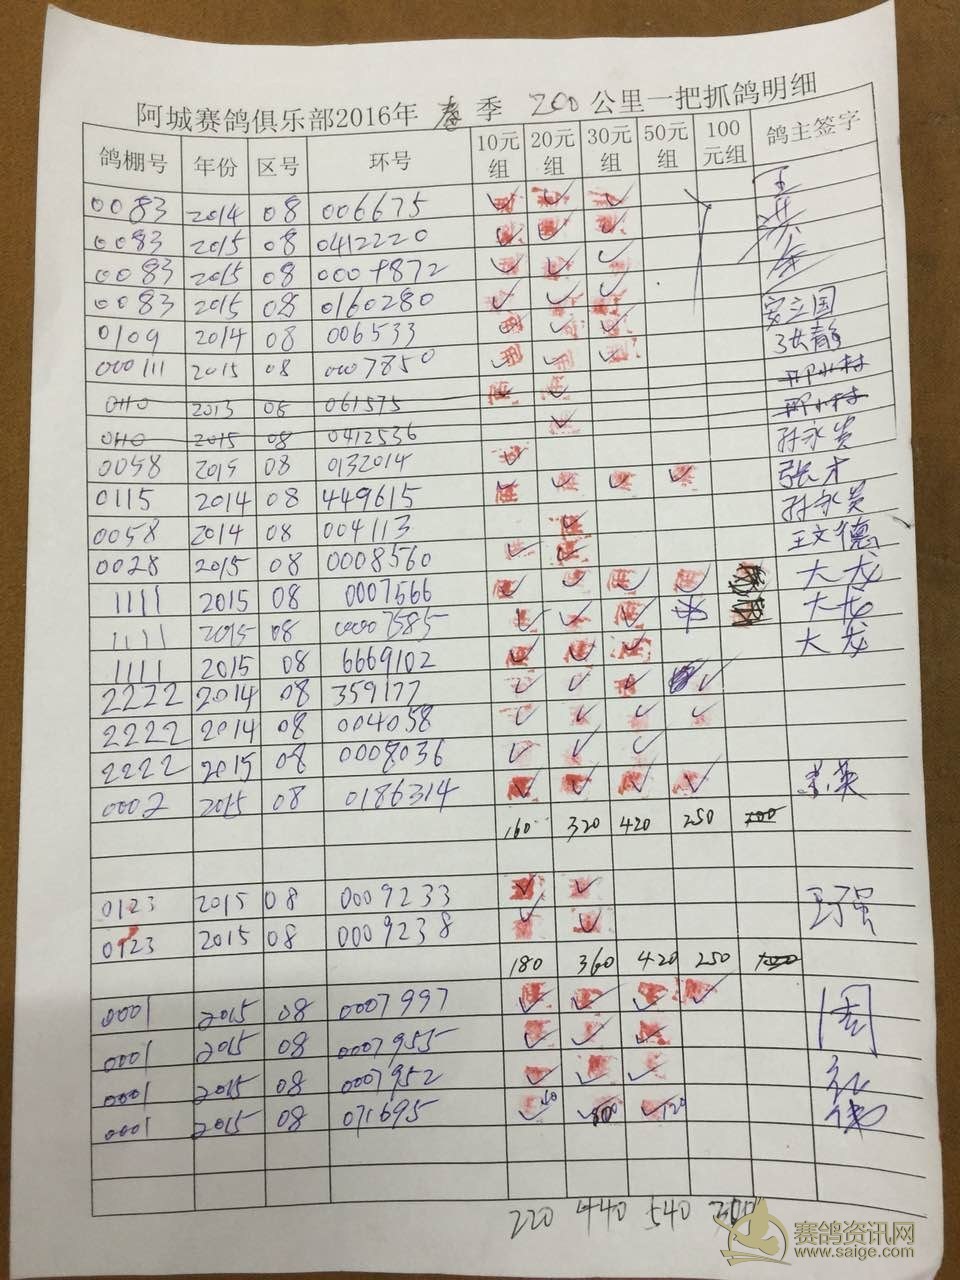 阿城赛鸽俱乐部2016年 春 季 200 公里一把抓鸽明细
鸽棚号 年份 区号 环号 10元组 20元组 30元组 50元组 100元组 鸽主签字
0083 2014 08 006675 ✓ ✓ ✓ 王
0083 2015 08 0412220 ✓ ✓ ✓
0083 2015 08 0007872 ✓ ✓ ✓
0083 2015 08 0160280 ✓ ✓ ✓
0109 2014 08 006533 ✓ ✓ ✓ 安立国
000111 2015 08 0007850 ✓ ✓ ✓ 张静
0110 2013 08 061575 ✓ ✓
0110 2015 08 0412536 ✓
0058 2015 08 0132014 ✓ 孙永贵
0115 2014 08 449615 ✓ ✓ ✓ ✓ 张才
0058 2014 08 004113 ✓ 孙永贵
0028 2015 08 0008560 ✓ ✓ 王文德
1111 2015 08 0007566 ✓ ✓ ✓ ✓ 大龙
1111 2015 08 00007585 ✓ ✓ ✓ 大龙
1111 2015 08 6669102 ✓ ✓ ✓ 大龙
2222 2014 08 359177 ✓ ✓ ✓ ✓
2222 2014 08 004058 ✓ ✓ ✓ ✓
2222 2015 08 0008036 ✓ ✓ ✓
0002 2015 08 0186314 ✓ ✓ ✓ ✓
160 320 420 250 100
0123 2015 08 0009233 ✓ ✓
0123 2015 08 0009238 ✓ ✓
180 360 420 250 100
0001 2015 08 0007997 ✓ ✓ ✓ ✓ 周
0001 2015 08 0007955 ✓ ✓ ✓
0001 2015 08 0007952 ✓ ✓ ✓
0001 2015 08 071695 ✓ 40 ✓ ✓ 120
220 440 540 300
赛鸽资讯网
www.saige.com